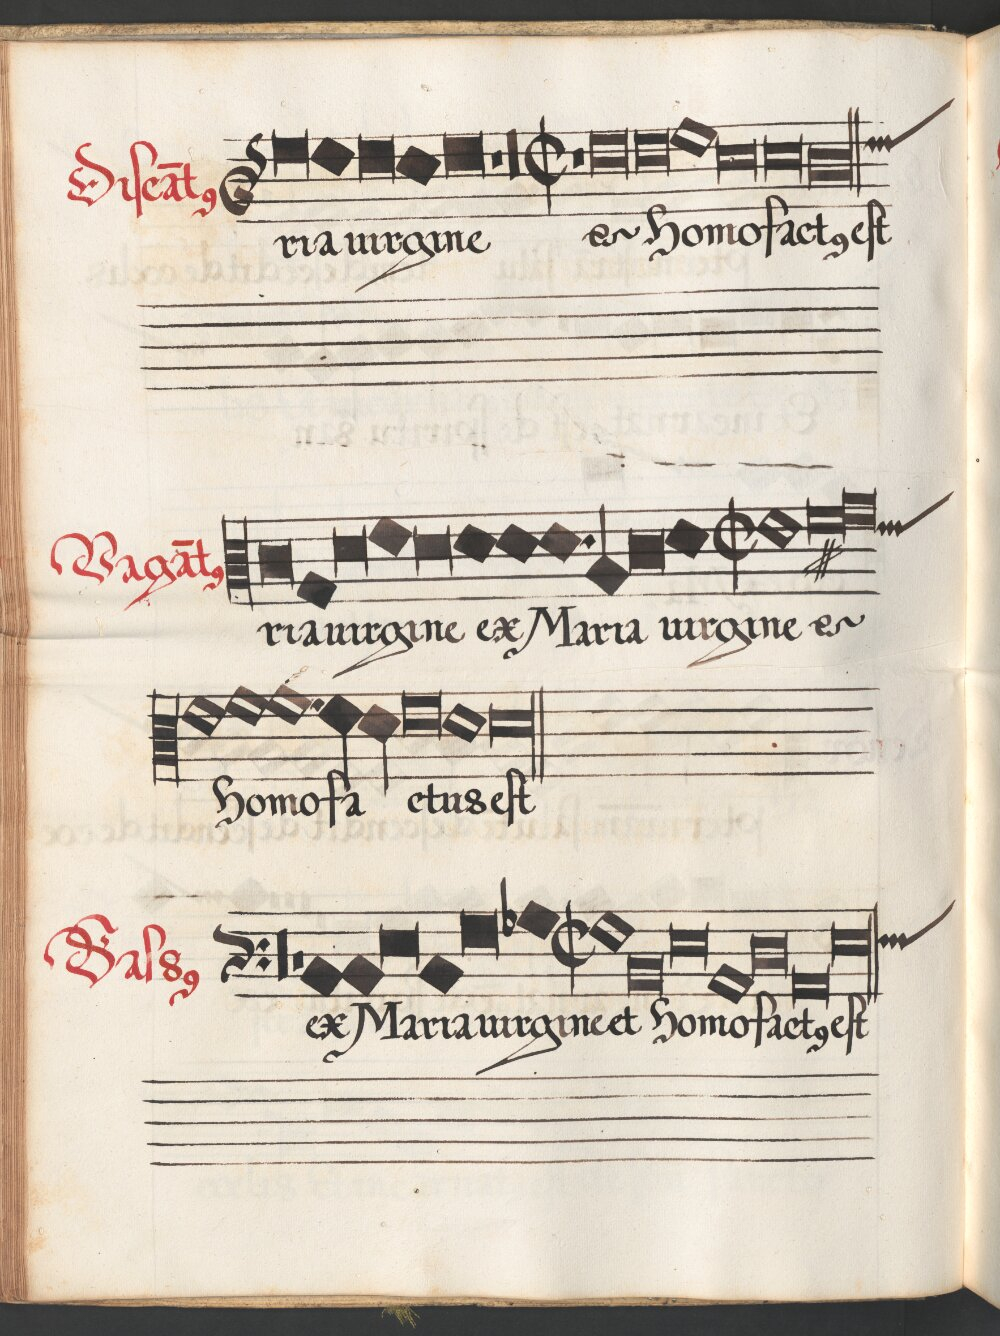 Discāt9
ria uirgine & Homo fact9 est
Vagāt9
ria uirgine ex Maria uirgine &
Homo fa ctus est
Bass9
ex Maria uirgine et Homo fact9 est